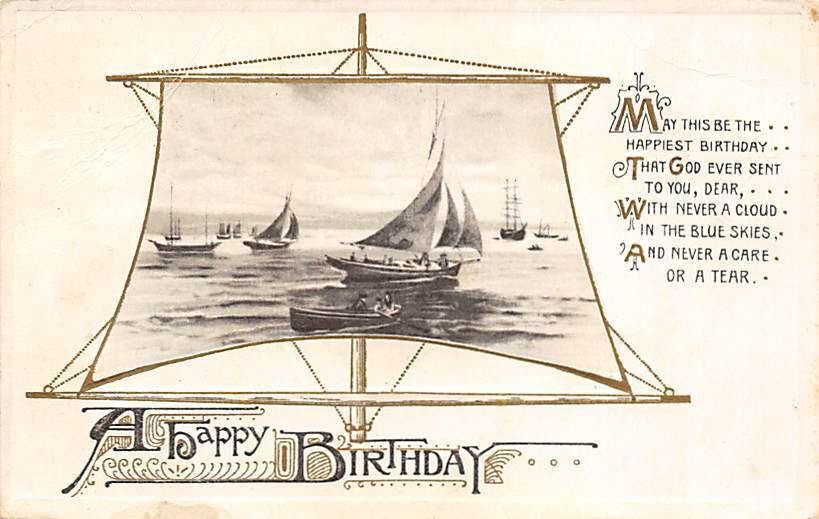 MAY THIS BE THE . .
HAPPIEST BIRTHDAY . .
THAT GOD EVER SENT
TO YOU, DEAR, . . .
WITH NEVER A CLOUD .
IN THE BLUE SKIES, .
AND NEVER A CARE .
OR A TEAR. .
A happy BIRTHDAY . . .